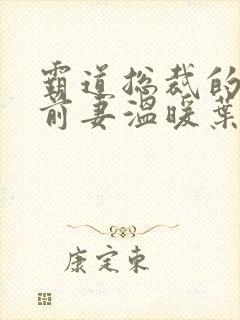 霸道总裁的
前妻温暖叶
康定东